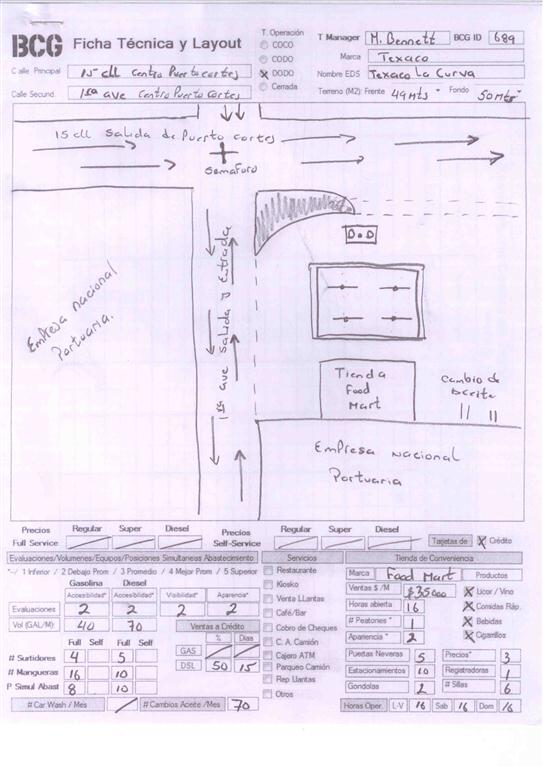 BCG Ficha Técnica y Layout
T. Operación
COCO
CODO
DODO
Cerrada
T Manager M. Bennett BCG ID 689
Marca Texaco
Nombre EDS Texaco La Curva
Terreno (M2): Frente 49mts Fondo 50mts
Calle Principal 15 cll Centro Puerto cortes
Calle Secund. 1ra ave Centro Puerto Cortes
15 cll Salida de Puerto cortes
Semaforo
D.D
Empresa nacional
Portuaria.
1ra ave Salida y Entrada
Tienda
Food
Mart
Cambio de
aceite
Empresa Nacional
Portuaria
Precios Regular Super Diesel Precios Regular Super Diesel
Full Service Self-Service Tarjetas de X Crédito
Evaluaciones/Volumenes/Equipos/Posiciones Simultaneas Abastecimiento
Servicios
Tienda de Conveniencia
*--/ 1 Inferior / 2 Debajo Prom / 3 Promedio / 4 Mejor Prom / 5 Superior
Gasolina Diesel
Accesibilidad* Accesibilidad* Visibilidad* Aparencia*
Evaluaciones 2 2 2 2
Vol (GAL/M) 40 70
Ventas a Crédito
% Dias
GAS
DSL 50 15
Full Self Full Self
# Surtidores 4 5
# Mangueras 16 10
P Simul Abast 8 10
# Car Wash / Mes
# Cambios Aceite /Mes 70
Restaurante
Kiosko
Venta LLantas
Café/Bar
Cobro de Cheques
C. A. Camión
Cajero ATM
Parqueo Camión
Rep Llantas
Otros
Marca Food Mart Productos
Ventas $ /M $35000 X Licor / Vino
Horas abierta 16 X Comidas Ráp.
# Peatones * 1 X Bebidas
Apariencia * 2 X Cigarrillos
Puertas Neveras 5 Precios* 3
Estacionamientos 10 Registradoras 1
Gondolas 2 # Sillas 6
Horas Oper. L-V 16 Sab 16 Dom 16